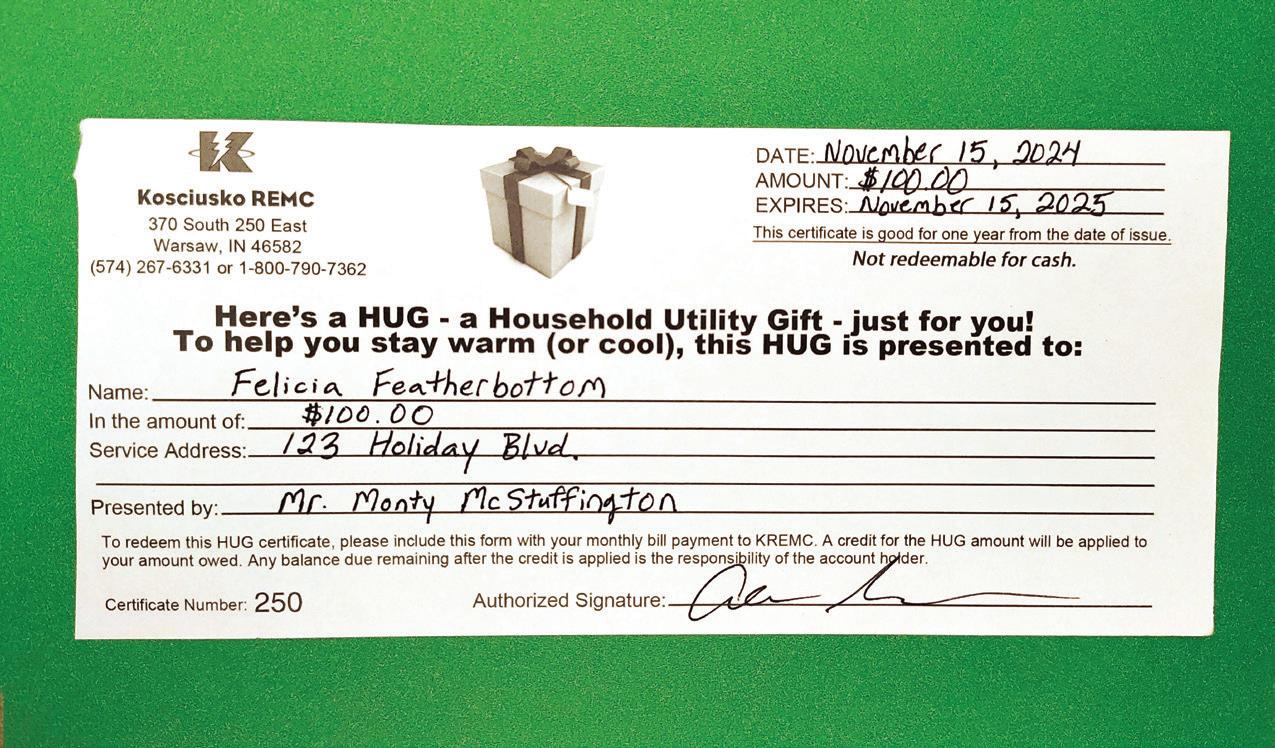 K
Kosciusko REMC
370 South 250 East
Warsaw, IN 46582
(574) 267-6331 or 1-800-790-7362
DATE: November 15, 2024
AMOUNT: $100.00
EXPIRES: November 15, 2025
This certificate is good for one year from the date of issue.
Not redeemable for cash.
Here's a HUG - a Household Utility Gift - just for you!
To help you stay warm (or cool), this HUG is presented to:
Name: Felicia Featherbottom
In the amount of: $100.00
Service Address: 123 Holiday Blvd.
Presented by: Mr. Monty McStuffington
To redeem this HUG certificate, please include this form with your monthly bill payment to KREMC. A credit for the HUG amount will be applied to
your amount owed. Any balance due remaining after the credit is applied is the responsibility of the account holder.
Certificate Number: 250
Authorized Signature: